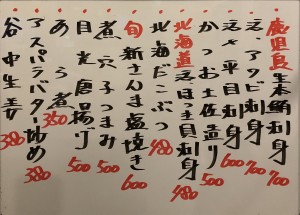 鹿児島生本鮪刺身 700
活〆アワビ刺身 700
活〆平目刺身 600
かつお土佐造り 500
北海道活ほっき貝刺身 480
北海だこぶつ 480
旬 新さんま塩焼き 600
煮穴子つまみ 500
目光唐揚げ 500
あら煮 350
アスパラバター炒め 380
谷中生姜 380